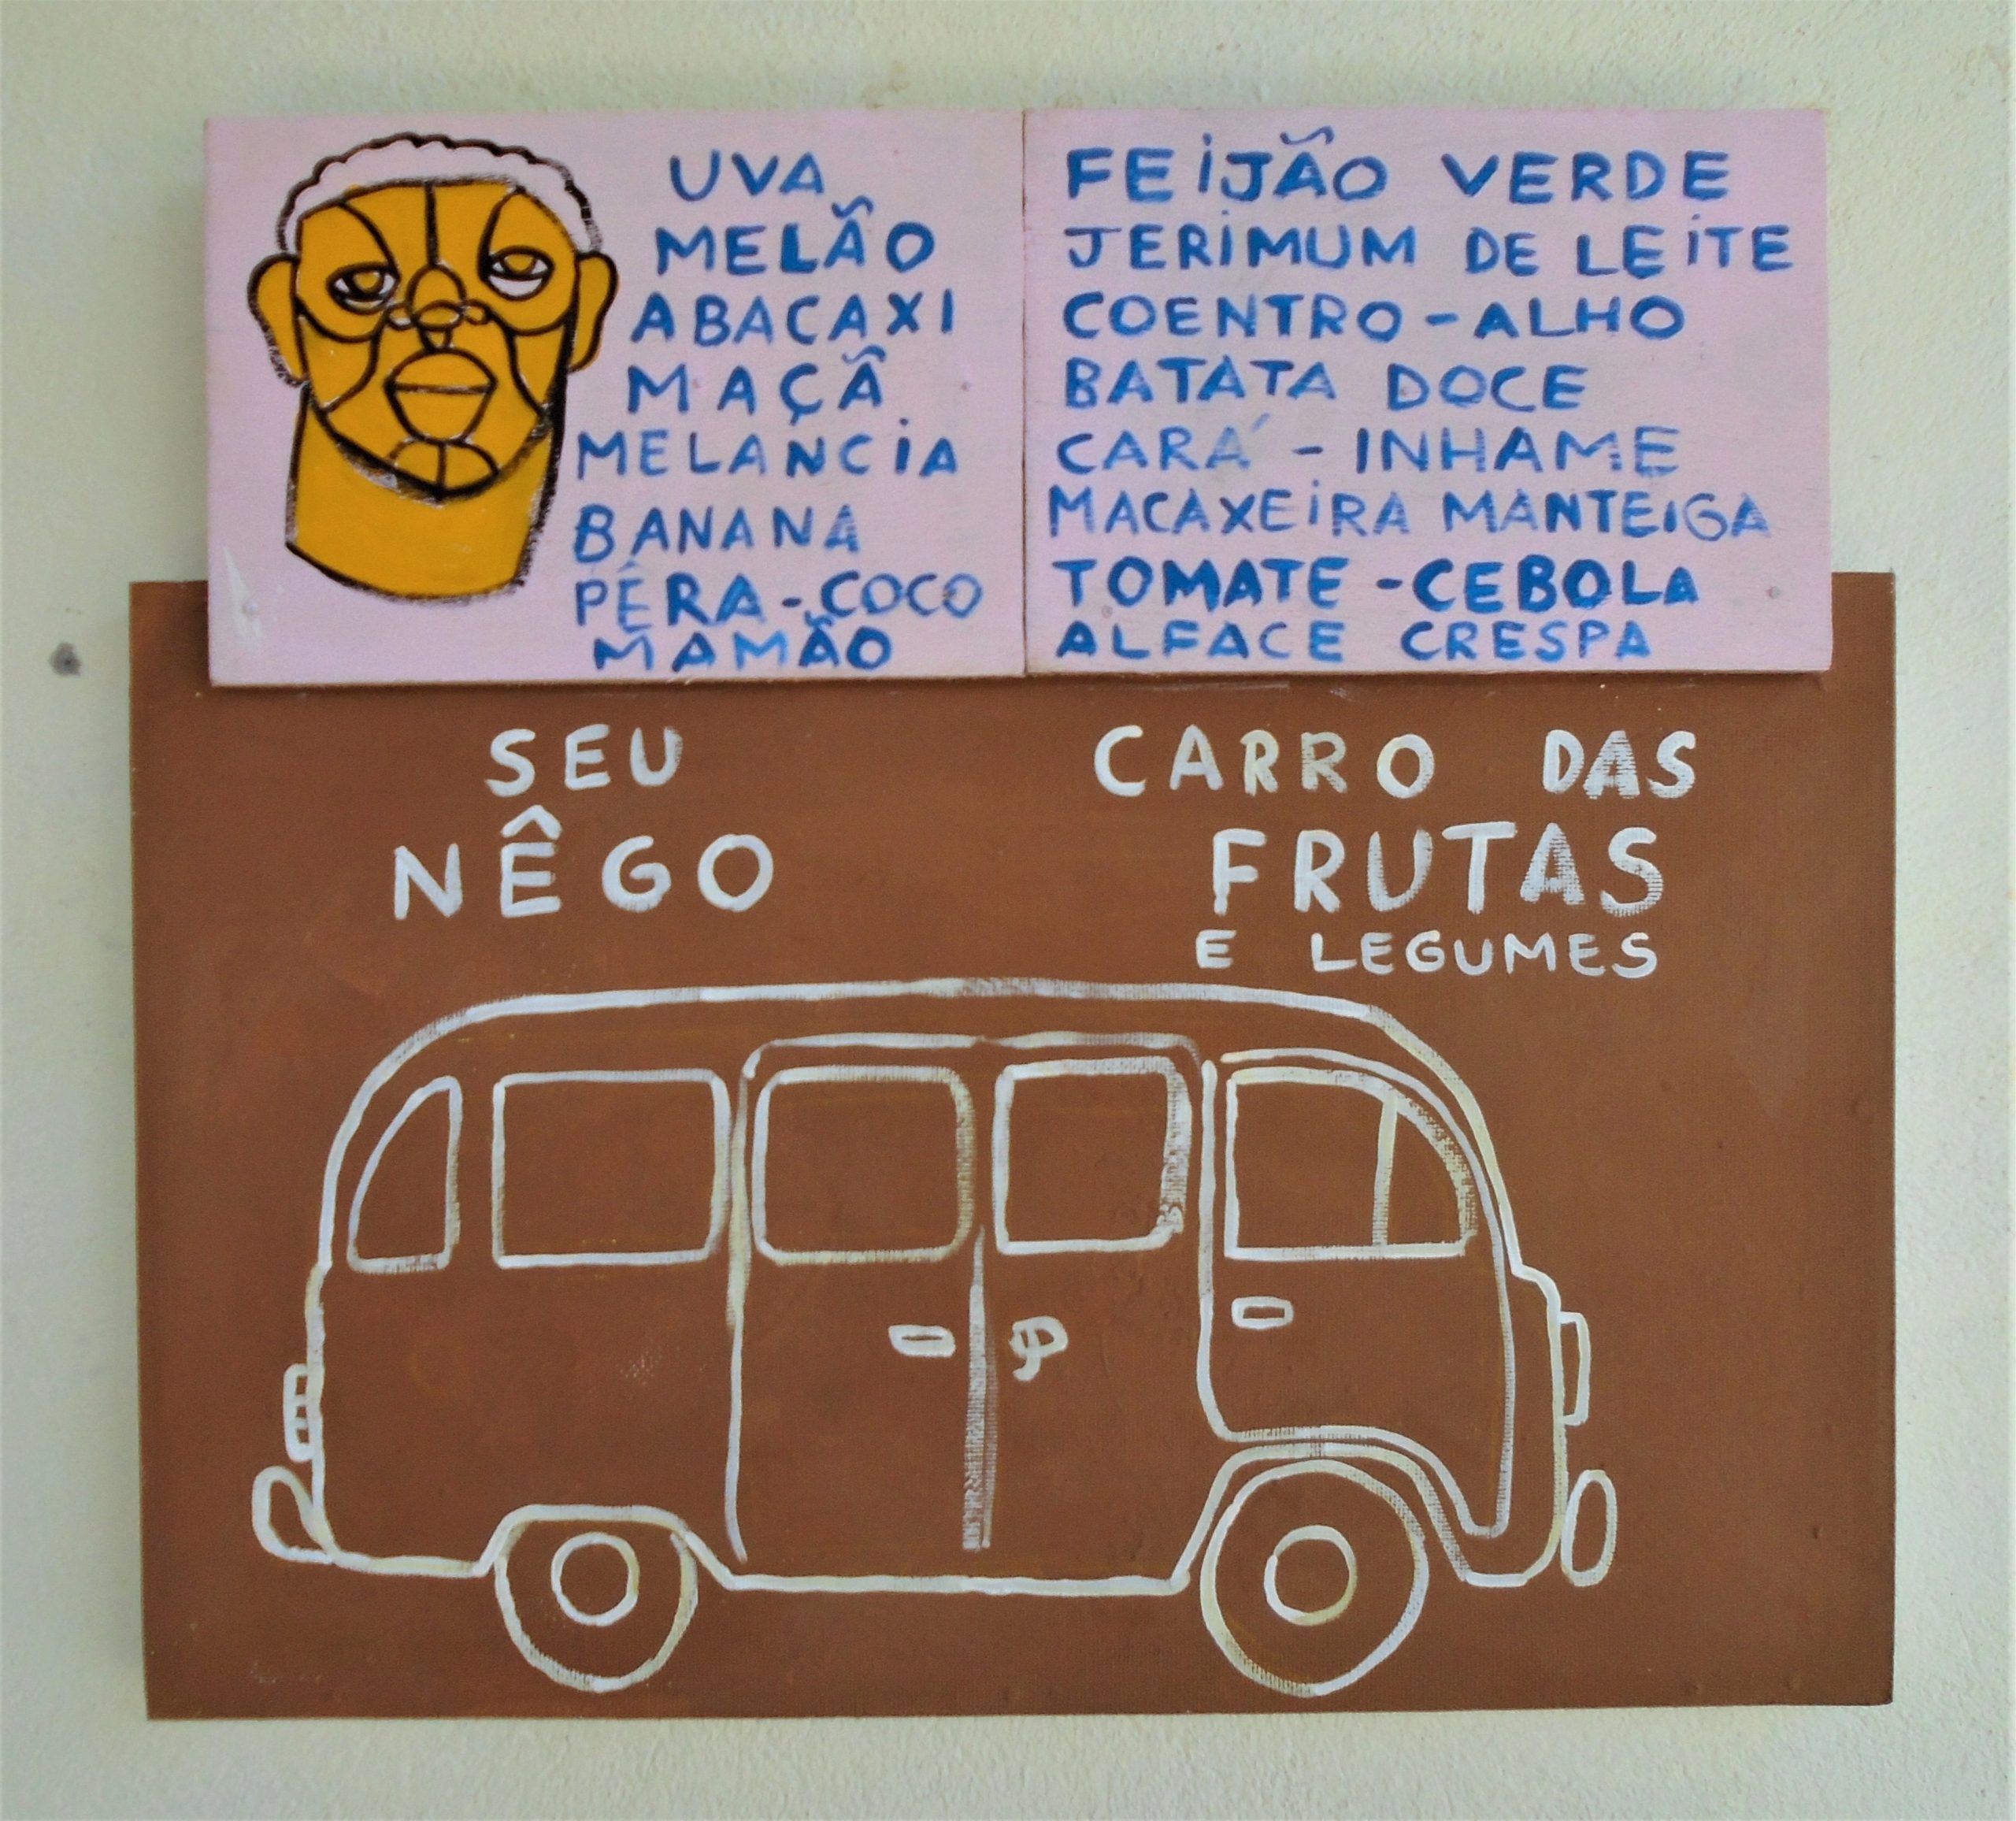 UVA
MELÃO
ABACAXI
MAÇÃ
MELANCIA
BANANA
PÉRA-COCO
MAMÃO
FEIJÃO VERDE
JERIMUM DE LEITE
COENTRO-ALHO
BATATA DOCE
CARÁ - INHAME
MACAXEIRA MANTEIGA
TOMATE -CEBOLA
ALFACE CRESPA
SEU
NÊGO
CARRO DAS
FRUTAS
E LEGUMES